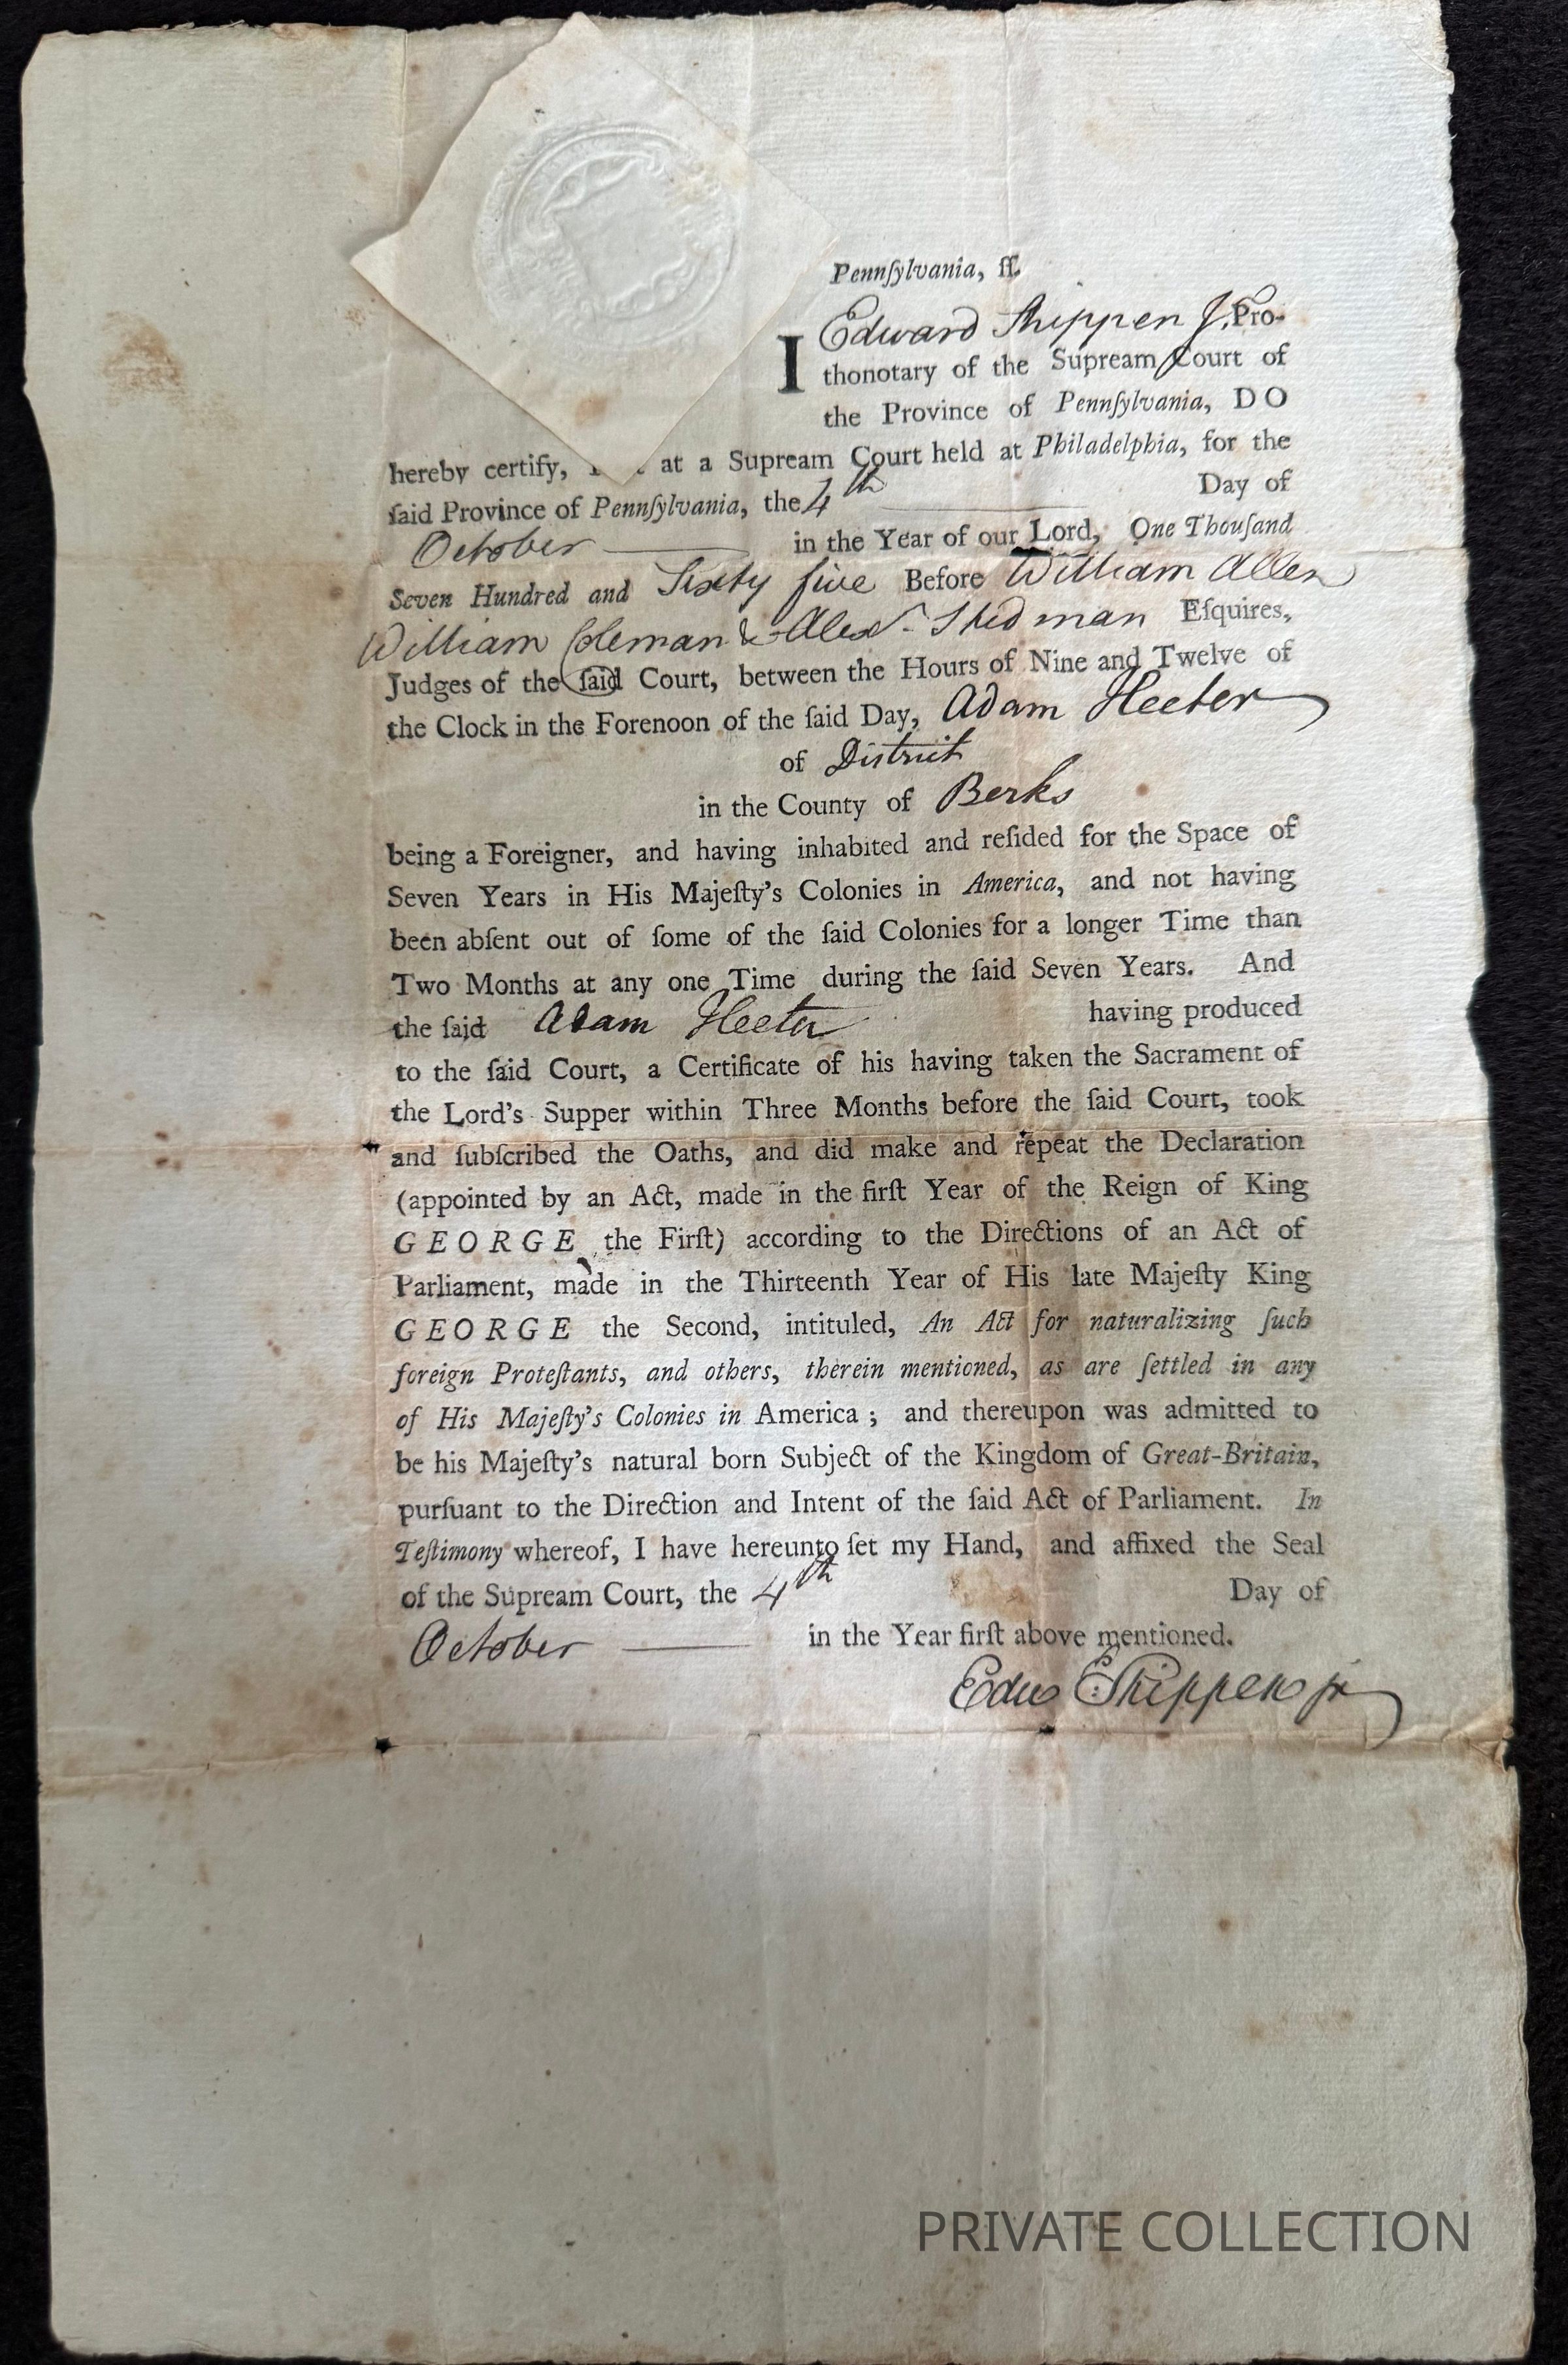 Pennſylvania, ſſ.
I Edward Shippen J. Pro-
thonotary of the Supream Court of
the Province of Pennſylvania, DO
hereby certify, at a Supream Court held at Philadelphia, for the
ſaid Province of Pennſylvania, the 4th Day of
October in the Year of our Lord, One Thouſand
Seven Hundred and Sixty five Before William Allen
William Coleman & Alexr. Stedman Eſquires,
Judges of the ſaid Court, between the Hours of Nine and Twelve of
the Clock in the Forenoon of the ſaid Day, Adam Heeter
of District
in the County of Berks
being a Foreigner, and having inhabited and reſided for the Space of
Seven Years in His Majeſty's Colonies in America, and not having
been abſent out of ſome of the ſaid Colonies for a longer Time than
Two Months at any one Time during the ſaid Seven Years. And
the ſaid Adam Heeter having produced
to the ſaid Court, a Certificate of his having taken the Sacrament of
the Lord's Supper within Three Months before the ſaid Court, took
and ſubſcribed the Oaths, and did make and repeat the Declaration
(appointed by an Act, made in the firſt Year of the Reign of King
GEORGE the Firſt) according to the Directions of an Act of
Parliament, made in the Thirteenth Year of His late Majeſty King
GEORGE the Second, intituled, An Act for naturalizing ſuch
foreign Proteſtants, and others, therein mentioned, as are ſettled in any
of His Majeſty's Colonies in America; and thereupon was admitted to
be his Majeſty's natural born Subject of the Kingdom of Great-Britain,
purſuant to the Direction and Intent of the ſaid Act of Parliament. In
Teſtimony whereof, I have hereunto ſet my Hand, and affixed the Seal
of the Supream Court, the 4th Day of
October in the Year firſt above mentioned.
Edwd Shippen jr
PRIVATE COLLECTION